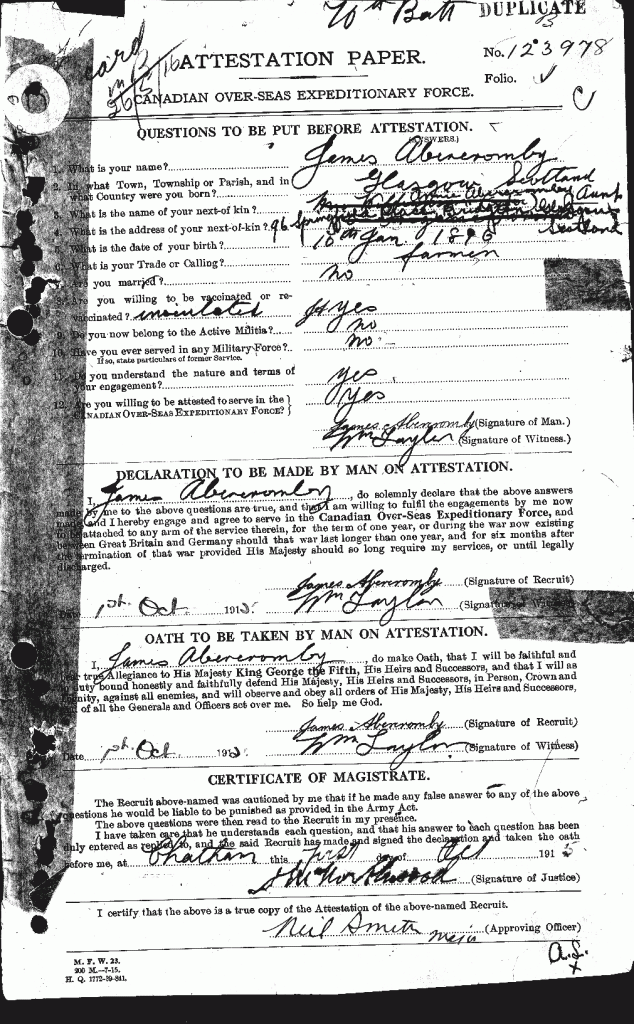 70th Batt DUPLICATE
ATTESTATION PAPER. No. 123978
Folio.
CANADIAN OVER-SEAS EXPEDITIONARY FORCE.
QUESTIONS TO BE PUT BEFORE ATTESTATION.
(ANSWERS.)
1. What is your name? James Abercromby
2. In what Town, Township or Parish, and in what Country were you born? Glasgow Scotland
What is the name of your next-of-kin? Abercromby Aunt
What is the address of your next-of-kin? 96 Springfield Scotland
What is the date of your birth? 10th Jan 1896
What is your Trade or Calling? farmer
Are you married? no
Are you willing to be vaccinated or re-
vaccinated? inoculated yes
Do you now belong to the Active Militia? no
10. Have you ever served in any Military Force? no.
If so, state particulars of former Service.
Do you understand the nature and terms of
your engagement? yes
12. Are you willing to be attested to serve in the
CANADIAN OVER-SEAS EXPEDITIONARY FORCE? Yes
James Abercromby (Signature of Man.)
Wm Taylor (Signature of Witness.)
DECLARATION TO BE MADE BY MAN ON ATTESTATION.
I, James Abercromby, do solemnly declare that the above answers
made by me to the above questions are true, and that I am willing to fulfil the engagements by me now
made, and I hereby engage and agree to serve in the Canadian Over-Seas Expeditionary Force, and
to be attached to any arm of the service therein, for the term of one year, or during the war now existing
between Great Britain and Germany should that war last longer than one year, and for six months after
the termination of that war provided His Majesty should so long require my services, or until legally
discharged.
James Abercromby (Signature of Recruit)
1st Oct 1915. Wm Taylor (Signature of Witness)
OATH TO BE TAKEN BY MAN ON ATTESTATION.
I, James Abercromby, do make Oath, that I will be faithful and
bear true Allegiance to His Majesty King George the Fifth, His Heirs and Successors, and that I will as
in duty bound honestly and faithfully defend His Majesty, His Heirs and Successors, in Person, Crown and
Dignity, against all enemies, and will observe and obey all orders of His Majesty, His Heirs and Successors,
and of all the Generals and Officers set over me. So help me God.
James Abercromby (Signature of Recruit)
Date 1st Oct 1915. Wm Taylor (Signature of Witness)
CERTIFICATE OF MAGISTRATE.
The Recruit above-named was cautioned by me that if he made any false answer to any of the above
questions he would be liable to be punished as provided in the Army Act.
The above questions were then read to the Recruit in my presence.
I have taken care that he understands each question, and that his answer to each question has been
duly entered as replied to, and the said Recruit has made and signed the declaration and taken the oath
before me, at Chatham this First day of Oct 1915
(Signature of Justice)
I certify that the above is a true copy of the Attestation of the above-named Recruit.
Neil Smith Major (Approving Officer)
M. F. W. 23.
200 M.—7-15.
H. Q. 1772-39-841.
A.S.